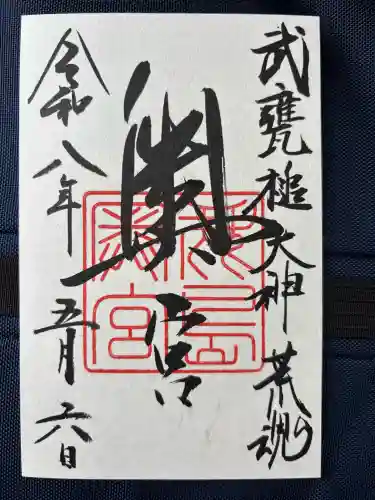 武甕槌大神 荒魂
奥宮
鹿島
奥宮
令和八年 五月 六日